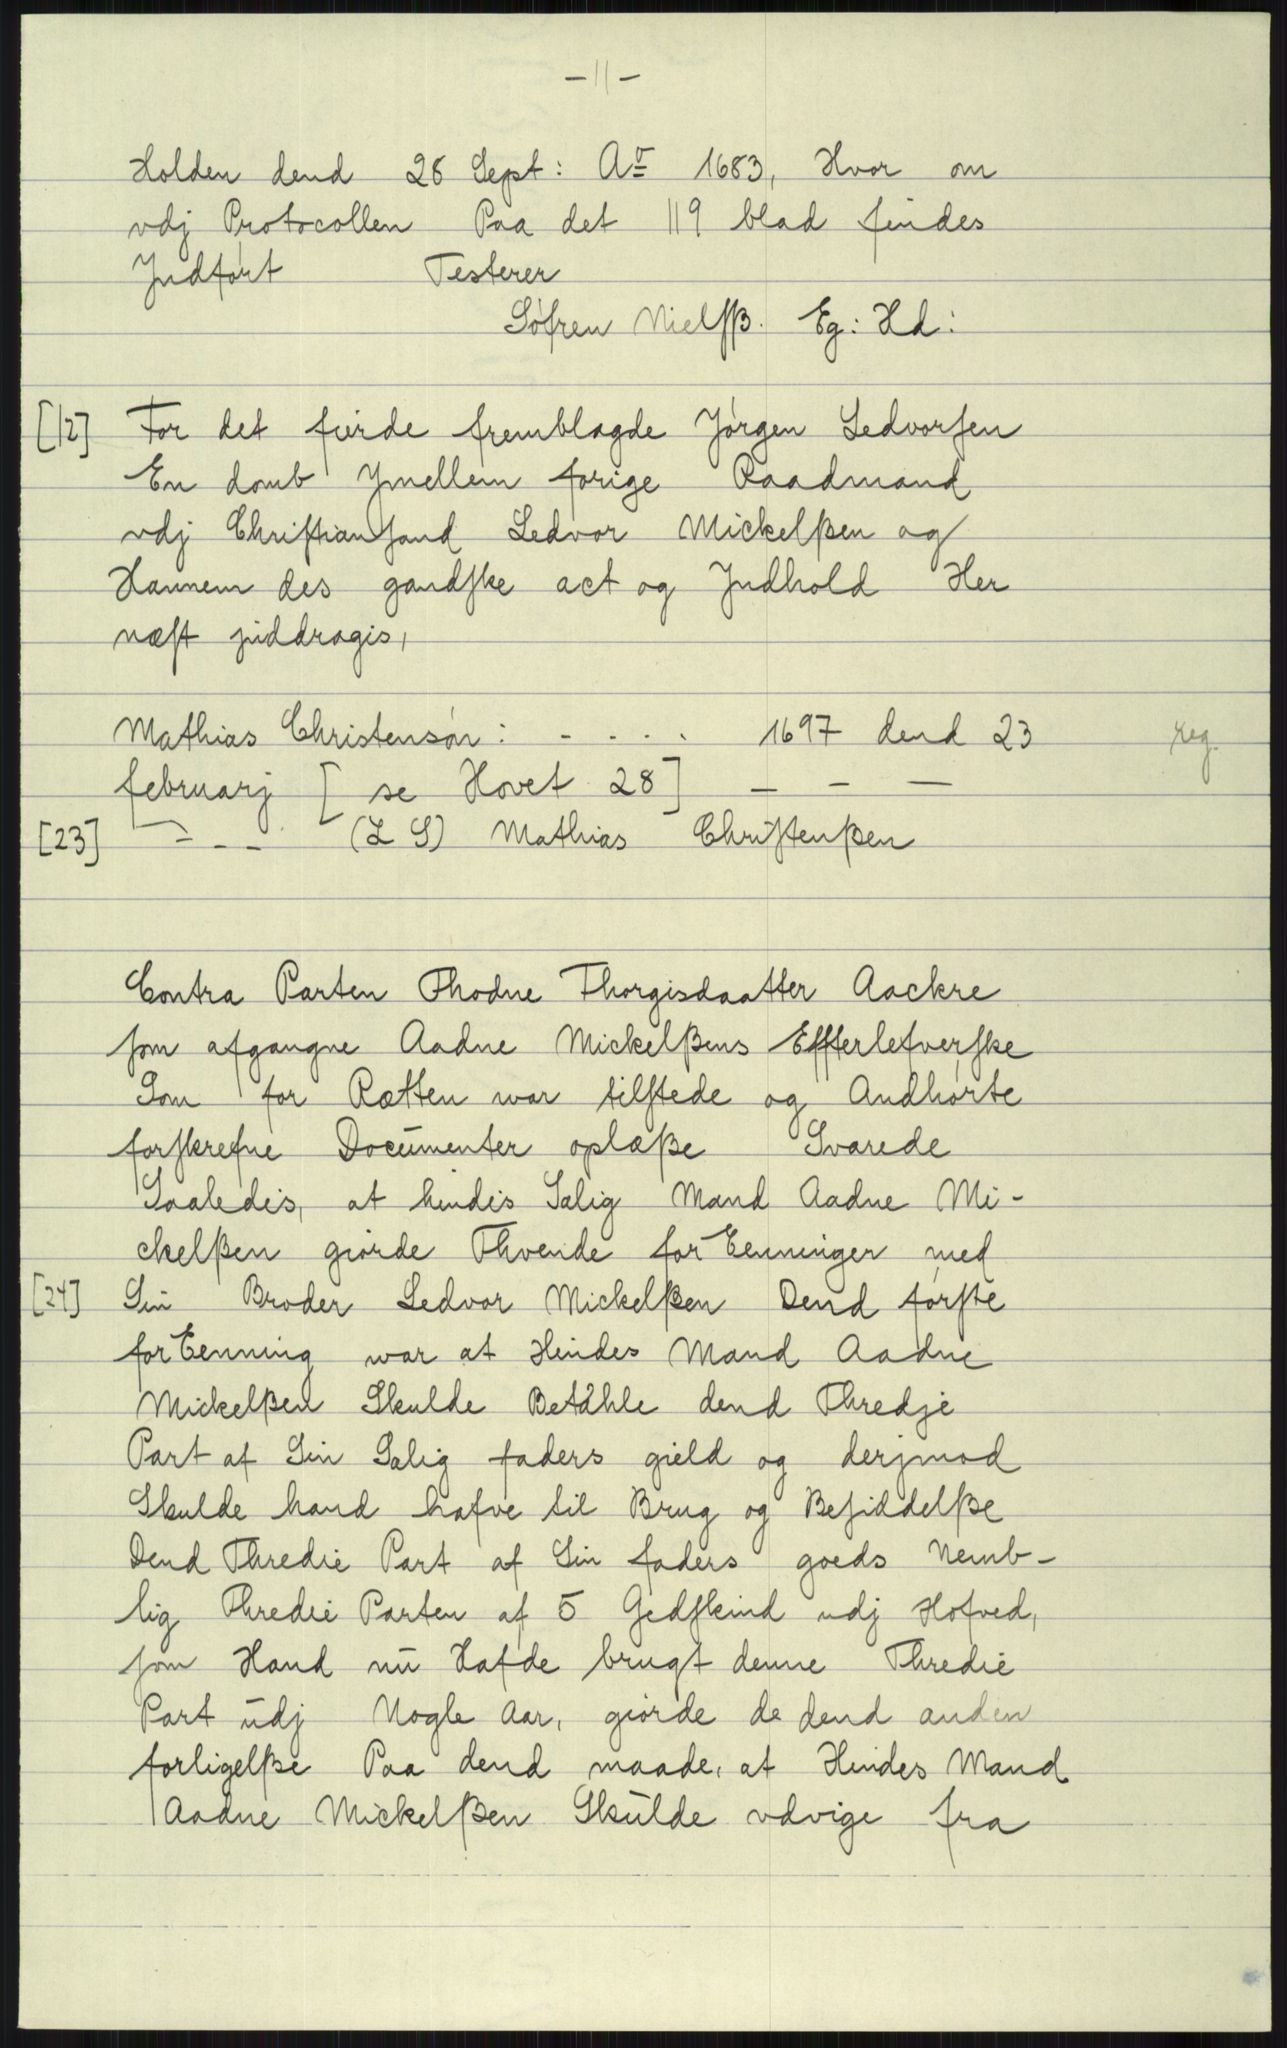 -11-
Holden dend 28 Sept: Ao 1683, Hvor om
vdj Protocollen Paa det 119 blad findes
Jndført Testerer
Søfren Nielsß. Eg: Hd:
[12] For det fierde fremblagde Jørgen Ledvorsen
En domb Jmellem forige Raadmand
vdj Christiansand Ledvor Mickelßen og
Hannem des gandske act og Jndhold Her
næst jnddragis,
Mathias Christensøn: - . . . 1697 dend 23 reg.
februarj [se Hovet 28] - - -
[23] - - - (L S) Mathias Christenßen
Contra Parten Thodne Thorgisdaatter Aackre
som afgangne Aadne Mickelßens Effterlefverske
Som for Rætten war tilstede og Andhørte
forskrefne Documenter oplæße Svarede
Saaledis, at hindis Salig Mand Aadne Mi-
ckelßen giorde Thvende for Eenninger med
[24] Sin Broder Ledvor Mickelßen Dend første
for Eenning war at Hindes Mand Aadne
Mickelßen Skulde Betahle dend Thredje
Part af Sin Salig faders gield og derjmod
Skulde hand hafve til Brug og Besiddelße
Dend Thredie Part af Sin faders goeds Nemb-
lig Thredie Parten af 5 Gedskind udj Hofved,
som Hand nu Hafde brugt denne Thredie
Part udj Nogle Aar, giorde de dend anden
forligelße Paa dend maade, at Hindes Mand
Aadne Mickelßen Skulde vdvige fra